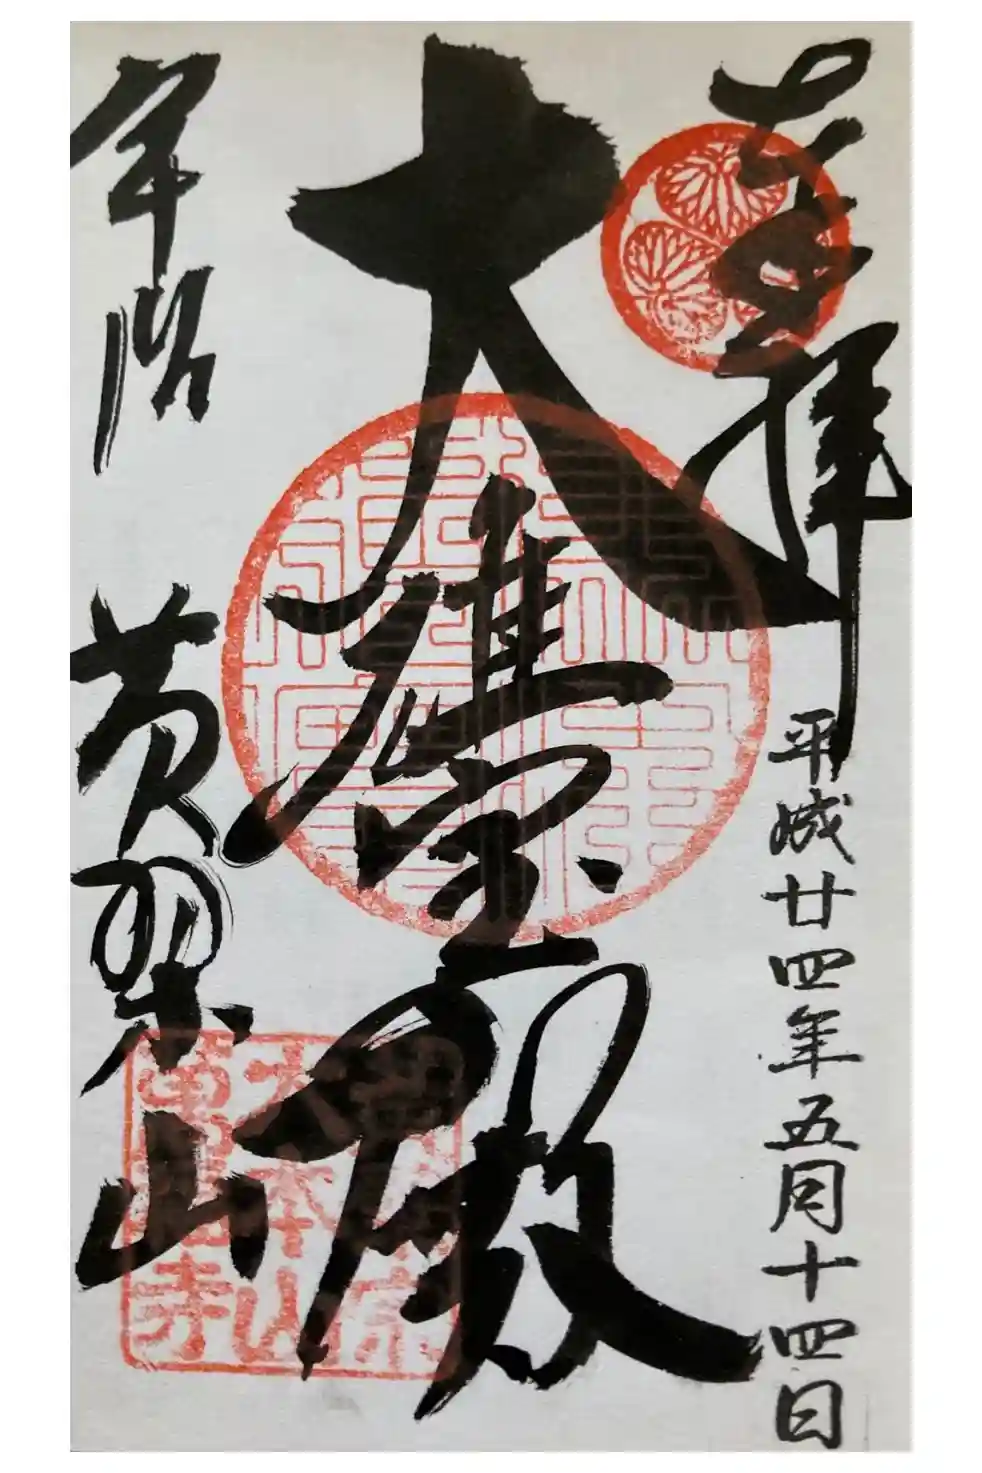 奉拝
平成廿四年五月十四日
大雄宝殿
宇治
黄檗山
黄檗宗
大本山
萬福寺